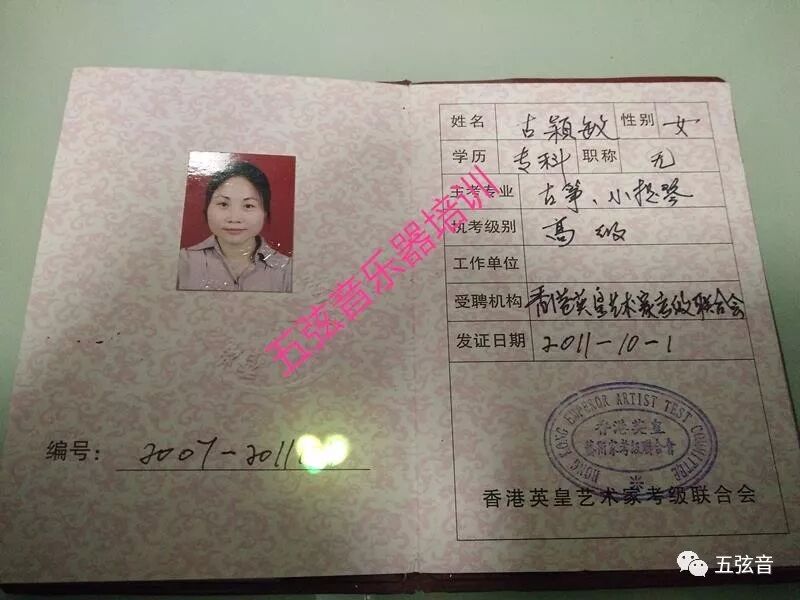 姓名 古颖敏 性别 女
学历 专科 职称 无
主考专业 古筝、小提琴
执考级别 高级
工作单位
受聘机构 香港英皇艺术家考级联合会
发证日期 2011-10-1
编号： 2007-2011
五弦音乐器培训
HONG KONG EMPEROR ARTIST TEST COMMITTEE
香港英皇
藝術家考級聯合會
香港英皇艺术家考级联合会
五弦音